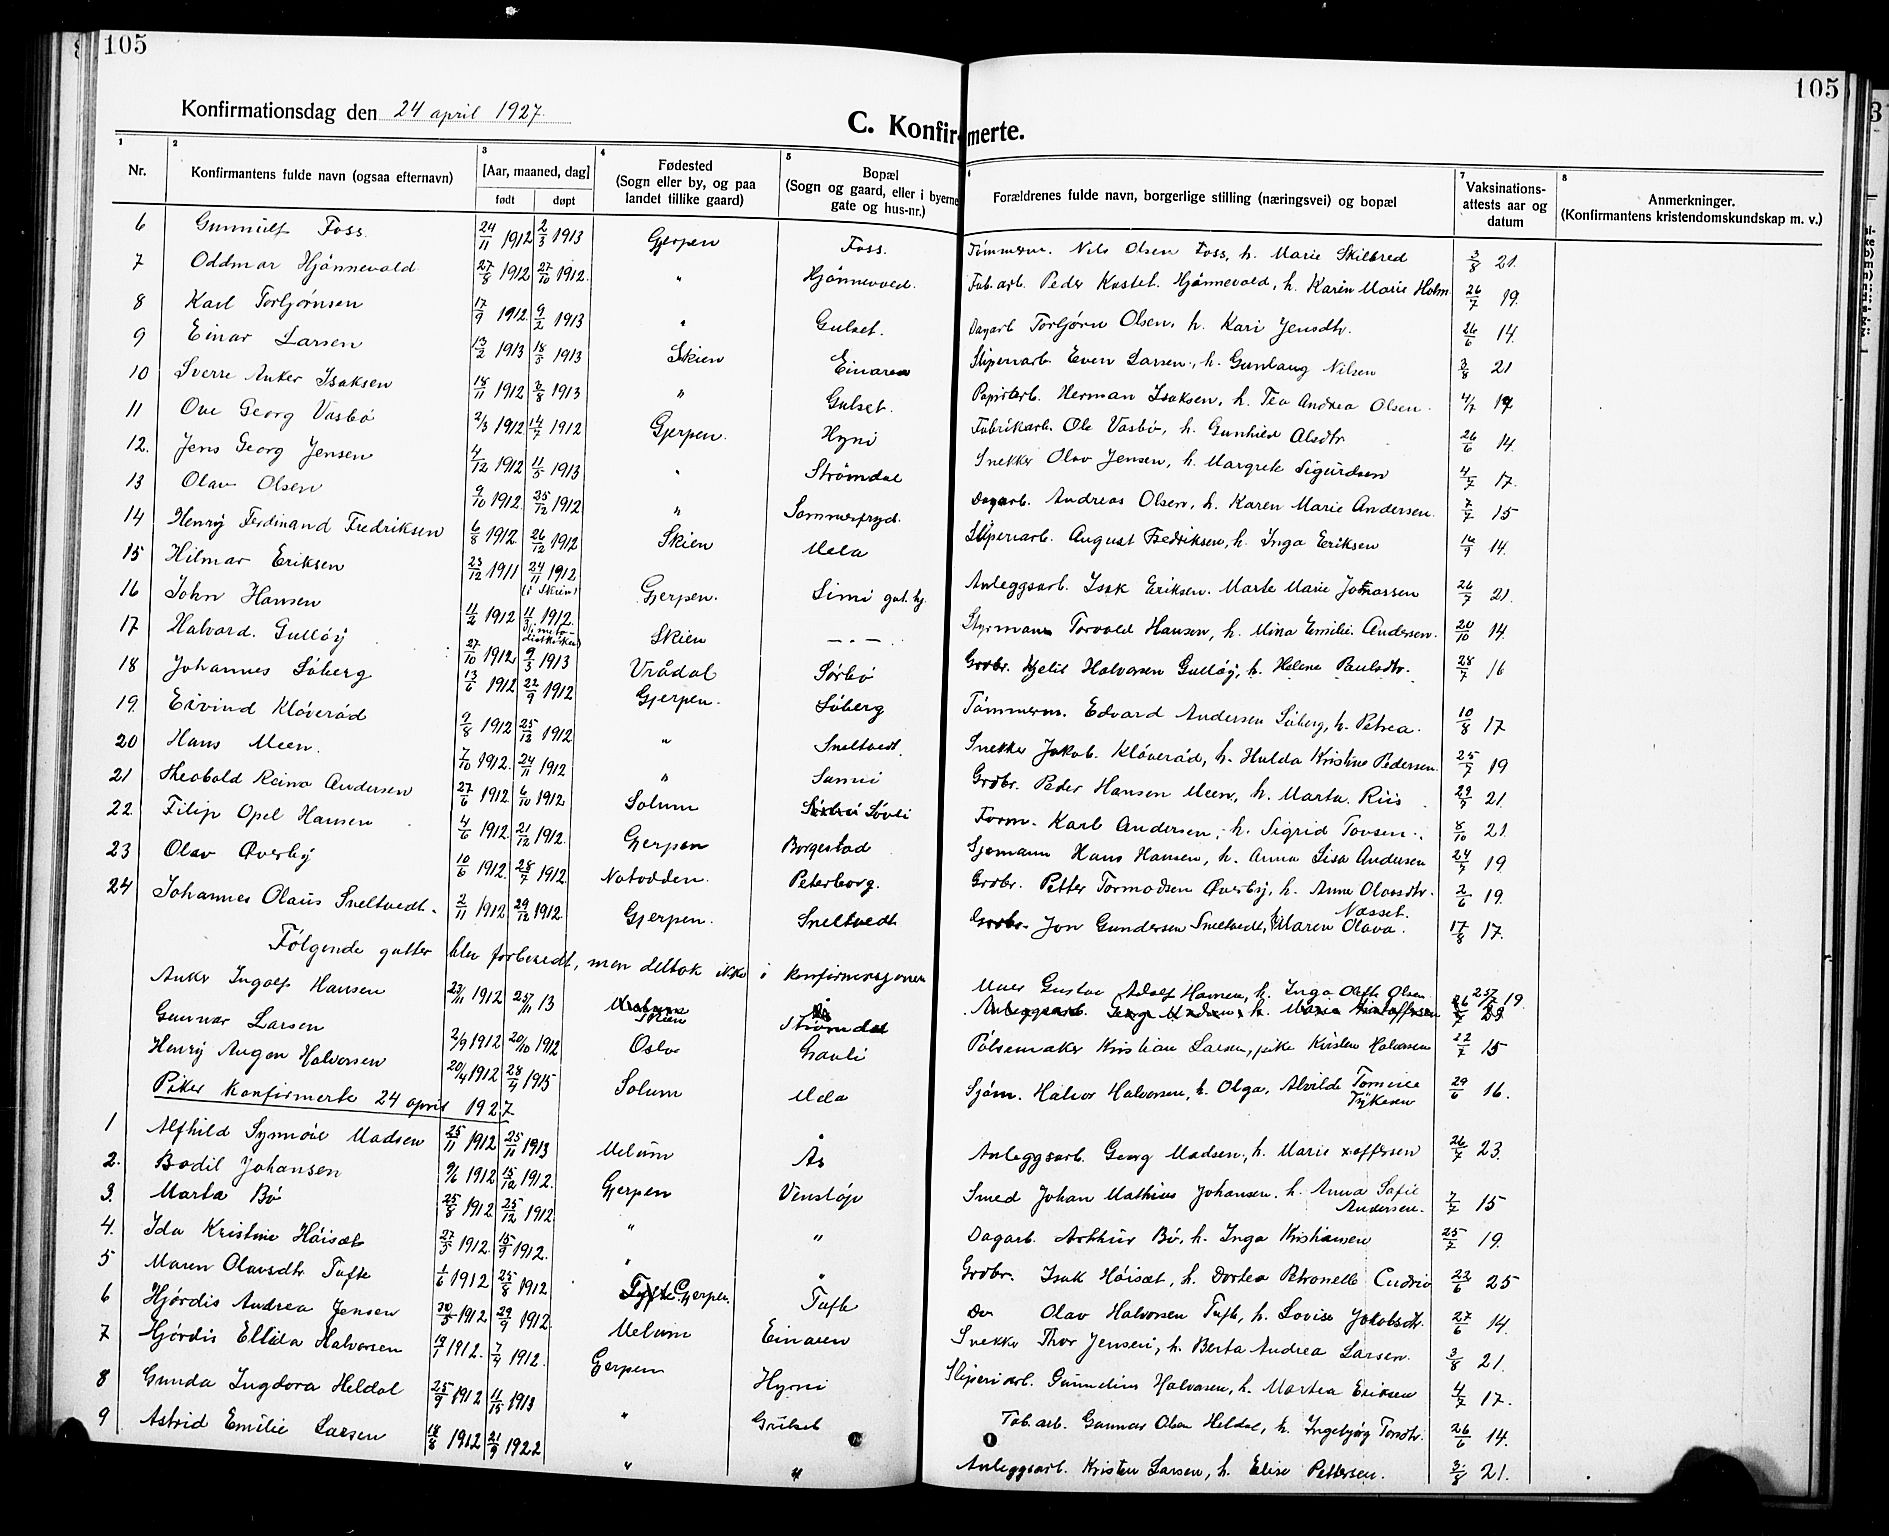 105
105
Konfirmationsdag den 24 april 1927.
C. Konfirmerte.
1 2 3 4 5 6 7 8
Nr. Konfirmantens fulde navn (ogsaa efternavn) [Aar, maaned, dag] født døpt Fødested (Sogn eller by, og paa landet tillike gaard) Bopæl (Sogn og gaard, eller i byerne gate og hus-nr.) Forældrenes fulde navn, borgerlige stilling (næringsvei) og bopæl Vaksinations-attests aar og datum Anmerkninger. (Konfirmantens kristendomskundskap m. v.)
6 Gunnulf Foss. 24/11 1912 2/3 1913 Gjerpen Foss. Tømmerm. Nils Olsen Foss, h. Marie Skilbred 3/8 21.
7 Oddmar Hjønnevald 27/8 1912 27/10 1912. " Hjønnevald. Fab.arb. Peder Kastet. Hjønnevald, h. Karen Marie Holm 26/7 19.
8 Karl Torbjørnsen 17/9 1912. 9/2 1913 " Gulset. Dagarb Torbjørn Olsen, h. Kari Jensdtr. 26/6 14.
9 Einar Larsen 13/2 1913 18/5 1913 Skien Einaren Sliperiarb. Even Larsen, h. Gunlaug Nilsen 3/8 21
10 Sverre Anker Isaksen 18/11 1912 3/8 1913 " Gulset. Papirarb. Herman Isaksen, h. Tea Andrea Olsen. 4/7 17
11 Ove Georg Vasbø 2/3 1912 14/7 1912 Gjerpen. Hyni Fabrikarb. Ole Vasbø, h. Gunhild Alsdtr 26/6 14.
12. Jens Georg Jensen 4/12 1912 11/5 1913 " Strømdal Snekker Olav Jensen, h. Margrete Sigurdsen 4/7 17.
13 Olav Olsen 9/10 1912. 25/12 1912 " Sommerfryd. Dagarb. Andreas Olsen, h. Karen Marie Andersen. 7/7 15
14 Henry Ferdinand Fredriksen 6/8 1912. 26/12 1912 Skien Mela Sliperiarb. August Fredriksen, h. Inga Eriksen 16/9 14.
15 Hilmar Eriksen 23/12 1911 24/11 1912 (i Skien) Gjerpen. Limi gat. hg. Anleggsarb. Isak Eriksen. Marte Marie Johassen 26/7 21.
16 John Hansen 11/2 1912 11/2 1912. Skien — . — . Styrmann Torvald Hansen, h. Mina Emilie Andersen. 20/10 14.
17 Halvard. Gulløy 27/10 1912. 9/3 1913 Vrådal Sørbø Grdbr. Kjetil Halvorsen Gulløy, h. Helene Paulsdtr. 28/7 16
18 Johannes Søberg 13/6 1912 22/9 1912 Gjerpen. Søberg Tømmerm. Edvard Andersen Søberg, h. Petrea. 10/8 17
19. Eivind Kløverød 9/8 1912 25/12 1912 " Sneltvedt. Snekker Jakob. Kløverød, h. Hulda Kristine Pedersen. 25/7 19
20 Hans Meen. 7/10 1912. 24/11 1912 " Grdbr. Peder Hansen Meen, h. Marta. Riis 29/9 21.
21 Theobald Andersen 27/6 1912 6/10 1912 Solum Søvli Form. Karl Andersen, h. Sigrid Tovsen. 8/10 21.
22. Filip Opel Hansen 4/6 1912. 21/12 1912. Gjerpen Borgestad Sjømann Hans Hansen, h. Anna Lisa Andersen 24/7 19.
23 Olav Øverby 10/6 1912 28/7 1912. Notodden. Peterborg. Grdbr. Petter Tormodsen Øverby, h. Anne Olavsdtr. 2/6 19.
24 Johannes Olaus Sneltvedt. 2/11 1912 29/12 1912. Gjerpen. Sneltvedt. Grdbr. Jon Gundersen Sneltvedt, h. Maren Olava. Næsset. 17/8 17.
Følgende gutter blev forberedt, men deltok ikke i konfirmasjonen
Anker Ingolf Hansen 23/11 1912 25/11 13 Skien Strømdal Murer Gustav Adolf Hansen, h. Inga Olufte Olsen 25/7 19.
Gunnar Larsen 2/9 1912 20/10 1912 Oslo Gravli Pølsemaker Kristian Larsen, pike Kirsten Halvorsen 22/7 15
Henry Augon Halvorsen 20/4 1912 28/4 1915 Solum Mela Sjøm. Halvor Halvorsen, h. Olga, Alvilde Tomine Tykesen 29/6 16.
Piker konfirmerte 24 april 1927
1 Alfhild Synnøve Madsen 25/11 1912 Melum Ås Anleggsarb. Georg Madsen, h. Marie xoffersen 26/7 23.
2. Bodil Johansen 9/6 1912 15/12 1912. Gjerpen Venstøp Smed Johan Mathias Johansen. h. Anna Sofie Andersen. 7/7 15
3. Marta Bø 25/8 1912. 25/12 1912. " " Dagarb. Arthur Bø, h. Inga Kristiansen 25/7 19.
4. Ida Kristine Høisæt 27/5 1912. 15/9 1912. " " Grdbr. Isak Høisæt, h. Dortea Petronelle 22/6 25
5 Maren Olavsdtr Tufte 1/6 1912 25/8 1912 Gjerpen. Tufte Do Olav Halvorsen Tufte, h. Lovise Jakobsdtr. 27/6 14.
6 Hjørdis Andrea Jensen 30/5 1912 29/9 1912. Melum Einaren Snekker Thor Jensen, h. Berta Andrea Larsen. 3/8 21.
7 Hjørdis Ellida Halvorsen 19/1 1912. 7/4 1912. Gjerpen Hyni Sliperiarb. Gunnelius Halvorsen, h. Martea Eriksen 4/7 17.
8 Gunda Ingdora Heldal 25/9 1912 1913 " Gulset Fab.arb. Gunnar Olsen Heldal, h. Ingebjørg Torsdtr. 26/6 14.
9 Astrid Emilie Larsen 18/8 1912 21/9 1922 " " Anleggsarb. Kristen Larsen, h. Elise Pettersen. 3/8 21.